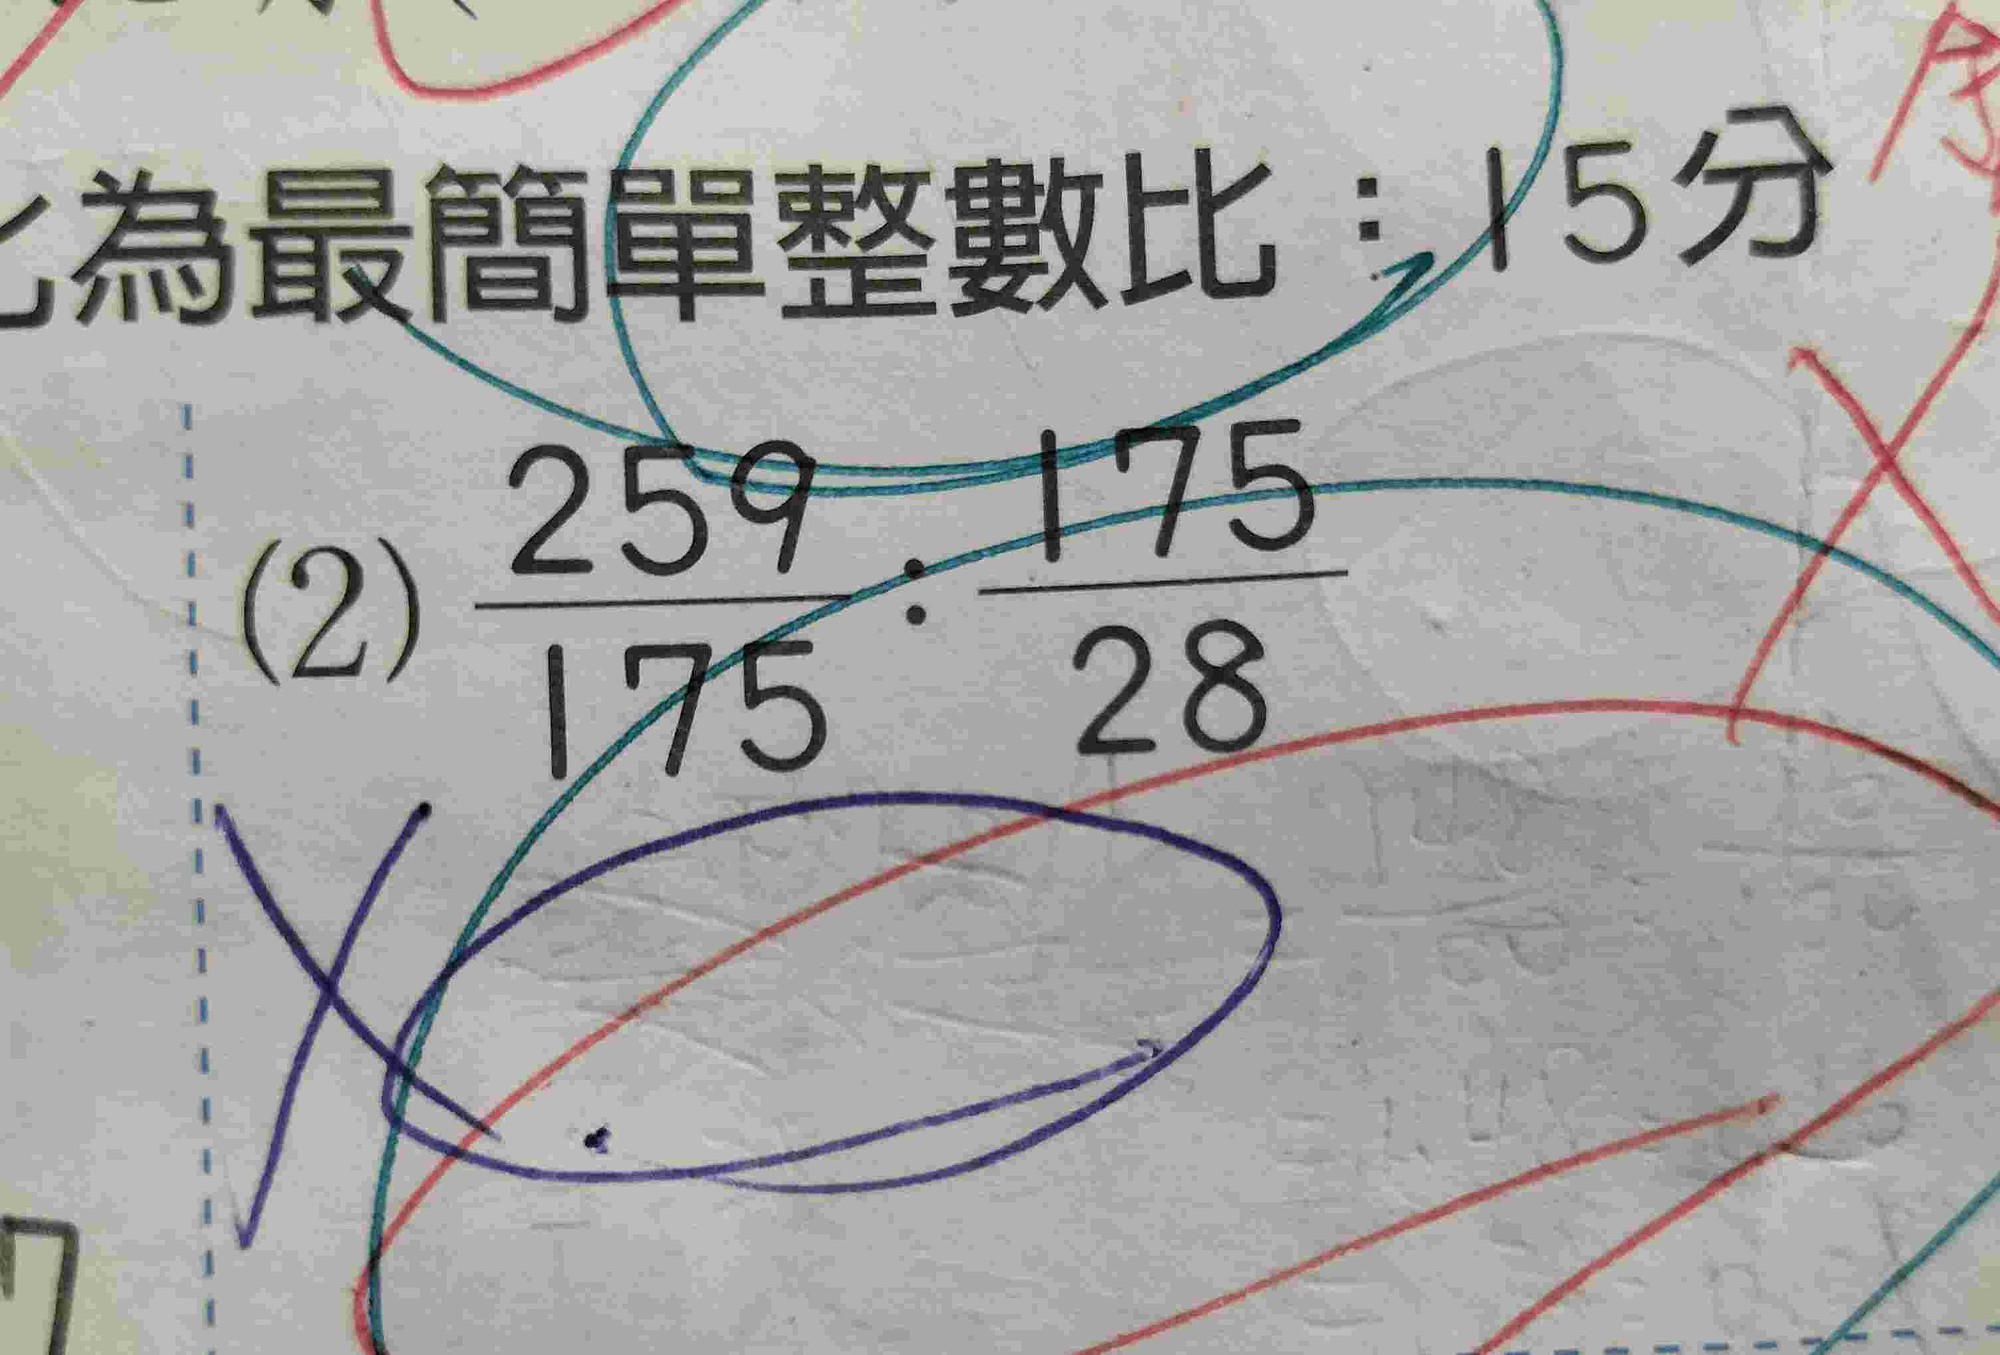 為最簡單整數比：15分
(2) 259/175 : 175/28